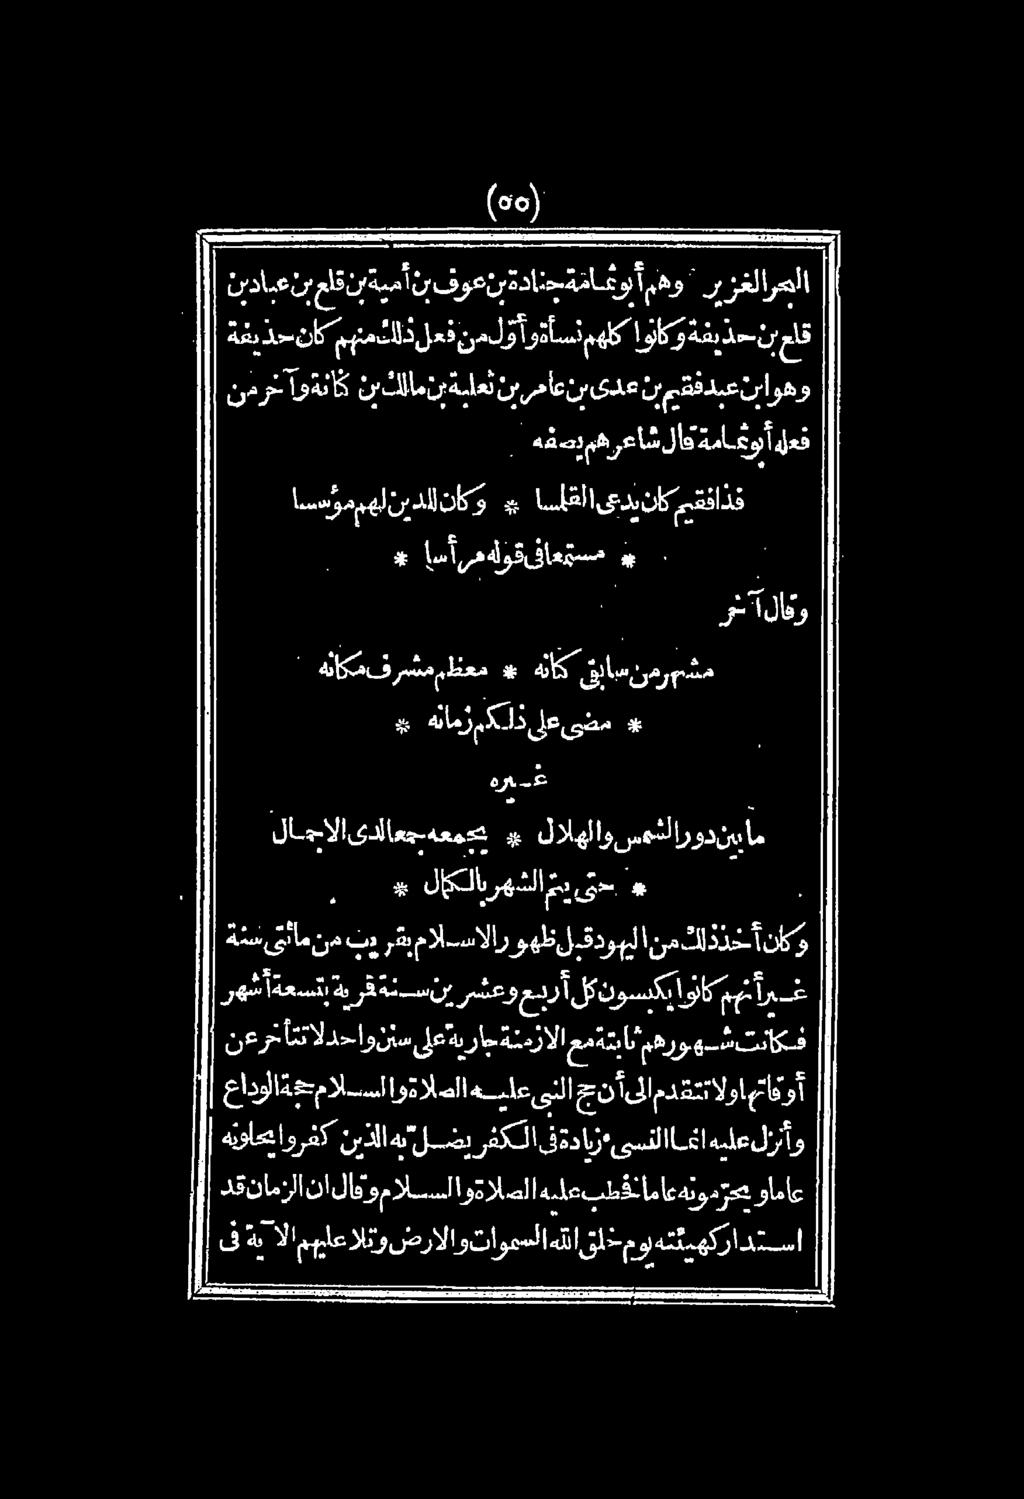 (٥٥)
البحر الغزير وهم أبو ثمامة جنادة بن عوف بن أمية بن قلع بن عباد بن
قلع بن حذيفة وكانوا كلهم نسأة وأوّل من فعل ذلك منهم كان حذيفة
وهو ابن عبد فقيم بن عدى بن عامر بن ثعلبة بن مالك بن كنانة وآخر من
فعله أبو ثمامة قال شاعرهم يصفه
فذا فقيم كان يدعى القلمسا * وكان للدين لهم مؤسسا
* مستمعا فى قوله مرأسا *
وقال آخر
مشهر من سابقى كنانه * معظم مشرف مكانه
* مضى على ذلكم زمانه *
غيره
ما بين دور الشمس والهلال * يجمعه جمعا لدى الاجمال
* حتى يتم الشهر بالكمال *
وكان أخذ ذلك من اليهود قبل ظهور الاسلام بقريب من مائتى سنة
غير أنهم كانوا يكبسون كل أربع وعشرين سنة قرية بتسعة أشهر
فكانت شهورهم ثابتة مع الازمنة جارية على سنن واحد لا تتأخر عن
أوقاتها ولا تتقدم الى أن حج النبى عليه الصلاة والسلام حجة الوداع
وأنزل عليه انما النسىء زيادة فى الكفر يضل به الذين كفروا يحلونه
عاما ويحرّمونه عاما فخطب عليه الصلاة والسلام وقال ان الزمان قد
استدار كهيئته يوم خلق الله السموات والارض وتلا عليهم الآية فى